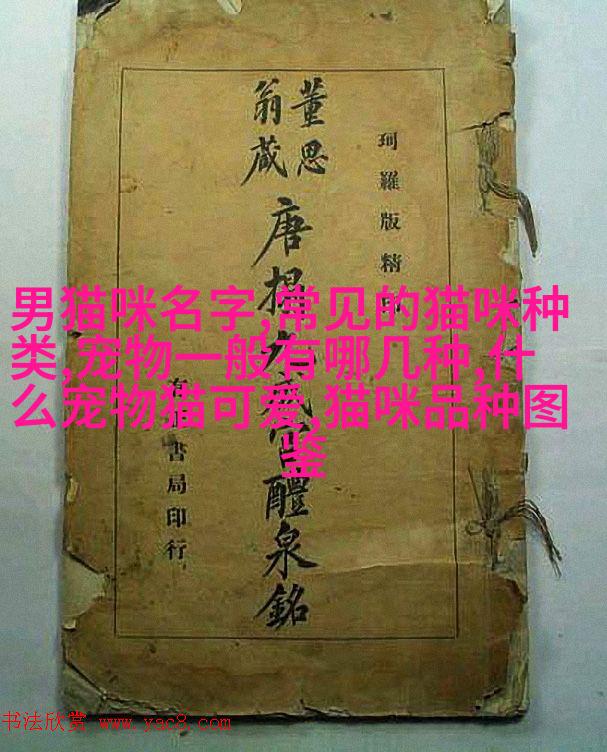 珂羅版精印
董思
翁藏
唐搨九成宮醴泉銘
有正書局印行
男猫咪名字,常见的猫咪种
类,宠物一般有哪几种,什
么宠物猫可爱,猫咪品种图
鉴
书法欣赏 www.yac8.com